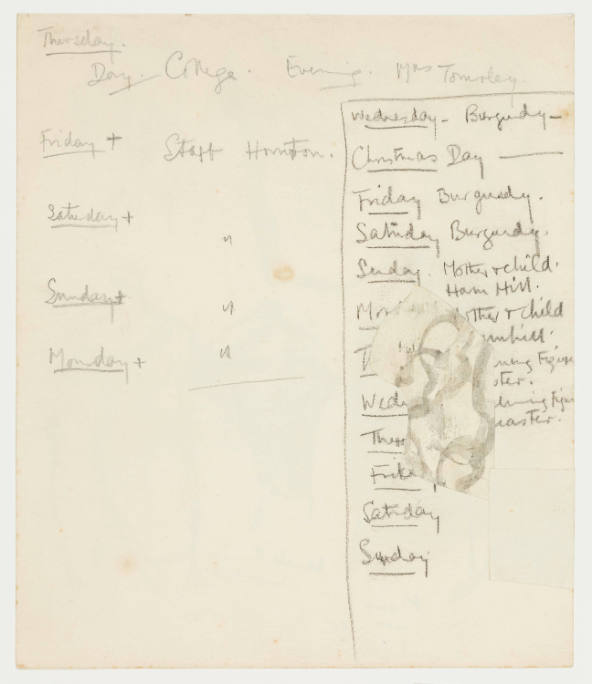 Thursday.
Day. College. Evening. Mrs
Friday + Staff Hornton.
Saturday + "
Sunday + "
Monday + "
Wednesday - Burgundy -
Christmas Day
Friday Burgundy.
Saturday Burgundy.
Sunday. Mother & child.
Ham Hill.
Mother & child
Figure
Figure
Saturday
Sunday